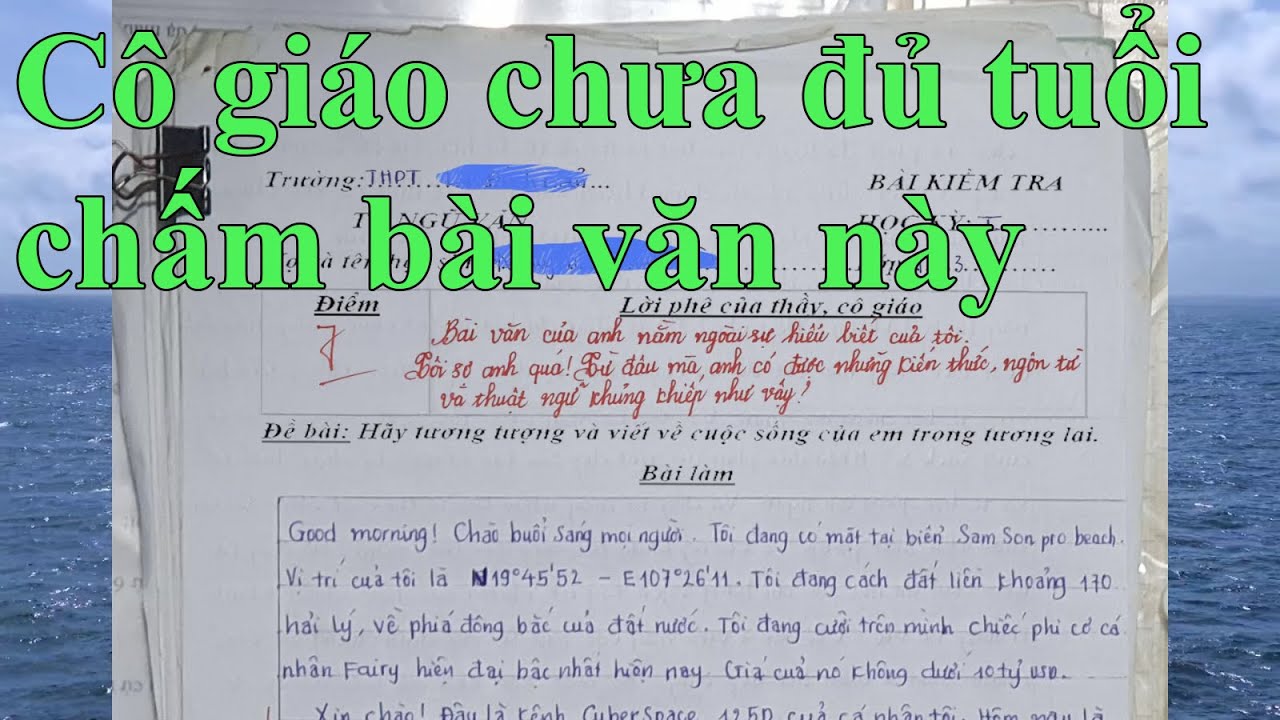 Cô giáo chưa đủ tuổi
chấm bài văn này
Trường: THPT
BÀI KIỂM TRA
NGỮ VĂN
HỌC KỲ: I
và tên
3
Điểm
Lời phê của thầy, cô giáo
7
Bài văn của anh nằm ngoài sự hiểu biết của tôi.
Tôi sợ anh quá! Từ đâu mà, anh có được những kiến thức, ngôn từ
và thuật ngữ khủng khiếp như vậy?
Đề bài: Hãy tưởng tượng và viết về cuộc sống của em trong tương lai.
Bài làm
Good morning! Chào buổi sáng mọi người. Tôi đang có mặt tại biển Sam Son pro beach.
Vị trí của tôi là N19°45'52 - E107°26'11. Tôi đang cách đất liền khoảng 170
hải lý, về phía đông bắc của đất nước. Tôi đang cưỡi trên mình chiếc phi cơ cá
nhân Fairy hiện đại bậc nhất hiện nay. Giá của nó không dưới 10 tỷ USD.
Xin chào! Đây là kênh CyberSpace 125D của cá nhân tôi. Hôm nay là